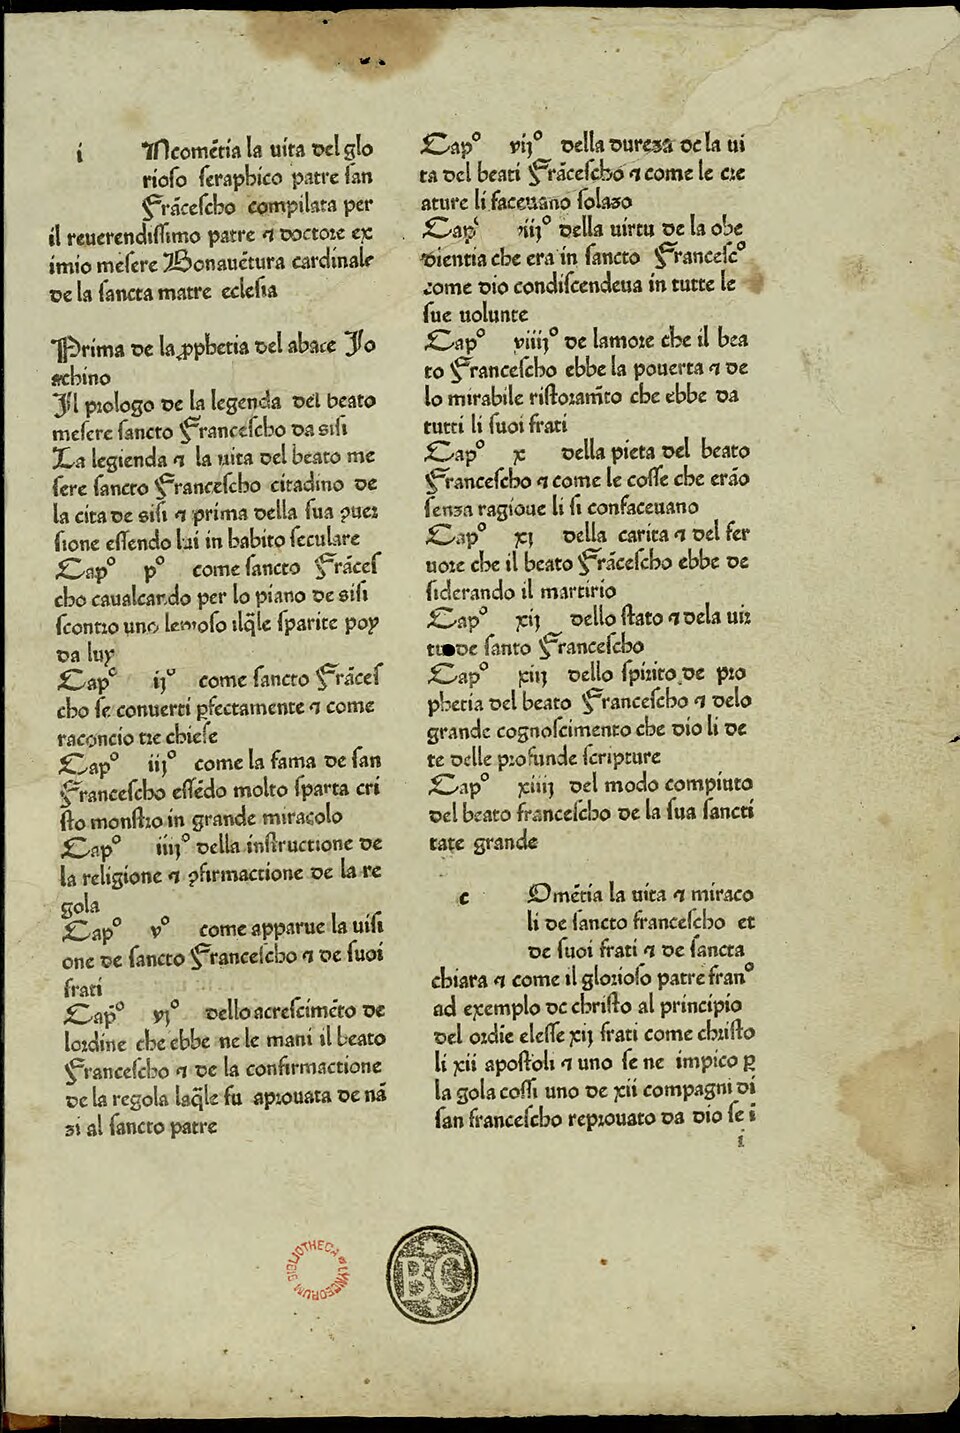 i Ncomētia la uita del glo
rioso seraphico patre san
Frācescho compilata per
il reuerendissimo patre ⁊ doctore ex
imio mesere Bonauētura cardinale
de la sancta matre eclesia
Prima de la ꝓphetia del abate Jo
achino
Il prologo de la legenda del beato
mesere sancto Francescho da sisi
La legienda ⁊ la uita del beato me
sere sancto Francescho citadino de
la cita de sisi ⁊ prima della sua ꝯuer
sione essendo lui in habito seculare
Capº pº come sancto Frāces
cho caualcando per lo piano de sisi
scontro uno lemoso ilq̄le sparite poy
da luy
Capº ijº come sancto Frāces
cho se conuerti ꝑfectamente ⁊ come
raconcio tre chiese
Capº iijº come la fama de san
Francescho essēdo molto sparta cri
sto monstro in grande miracolo
Capº iiijº della instructione de
la religione ⁊ ꝯfirmactione de la re
gola
Capº vº come apparue la uisi
one de sancto Francescho ⁊ de suoi
frati
Capº vjº dello acrescimēto de
lordine che ebbe ne le mani il beato
Francescho ⁊ de la confirmactione
de la regola laq̄le fu aprouata de nā
zi al sancto patre
Capº vijº della dureza de la ui
ta del beati Frācescho ⁊ come le cre
ature li faceuano solazo
Capº viijº della uirtu de la obe
dientia che era in sancto Francescº
come dio condiscendeua in tutte le
sue uolunte
Capº viiijº de lamore che il bea
to Francescho ebbe la pouerta ⁊ de
lo mirabile ristoram̄to che ebbe da
tutti li suoi frati
Capº x della pieta del beato
Francescho ⁊ come le cosse che erāo
senza ragioue li si confaceuano
Capº xj della carita ⁊ del fer
uore che il beato Frācescho ebbe de
siderando il martirio
Capº xij dello stato ⁊ dela uir
tu de santo Francescho
Capº xiij dello spirito de pro
phetia del beato Francescho ⁊ delo
grande cognoscimento che dio li de
te delle profunde scripture
Capº xiiij del modo compiuto
del beato francescho de la sua sancti
tate grande
c Omētia la uita ⁊ miraco
li de sancto francescho et
de suoi frati ⁊ de sancta
chiara ⁊ come il glorioso patre franº
ad exemplo de christo al principio
del ordie elesse xij frati come christo
li xii apostoli ⁊ uno se ne impico ꝑ
la gola cossi uno de xii compagni di
san francescho reprouato da dio se ī
i
BIBLIOTHECA LYNCEORUM
BC